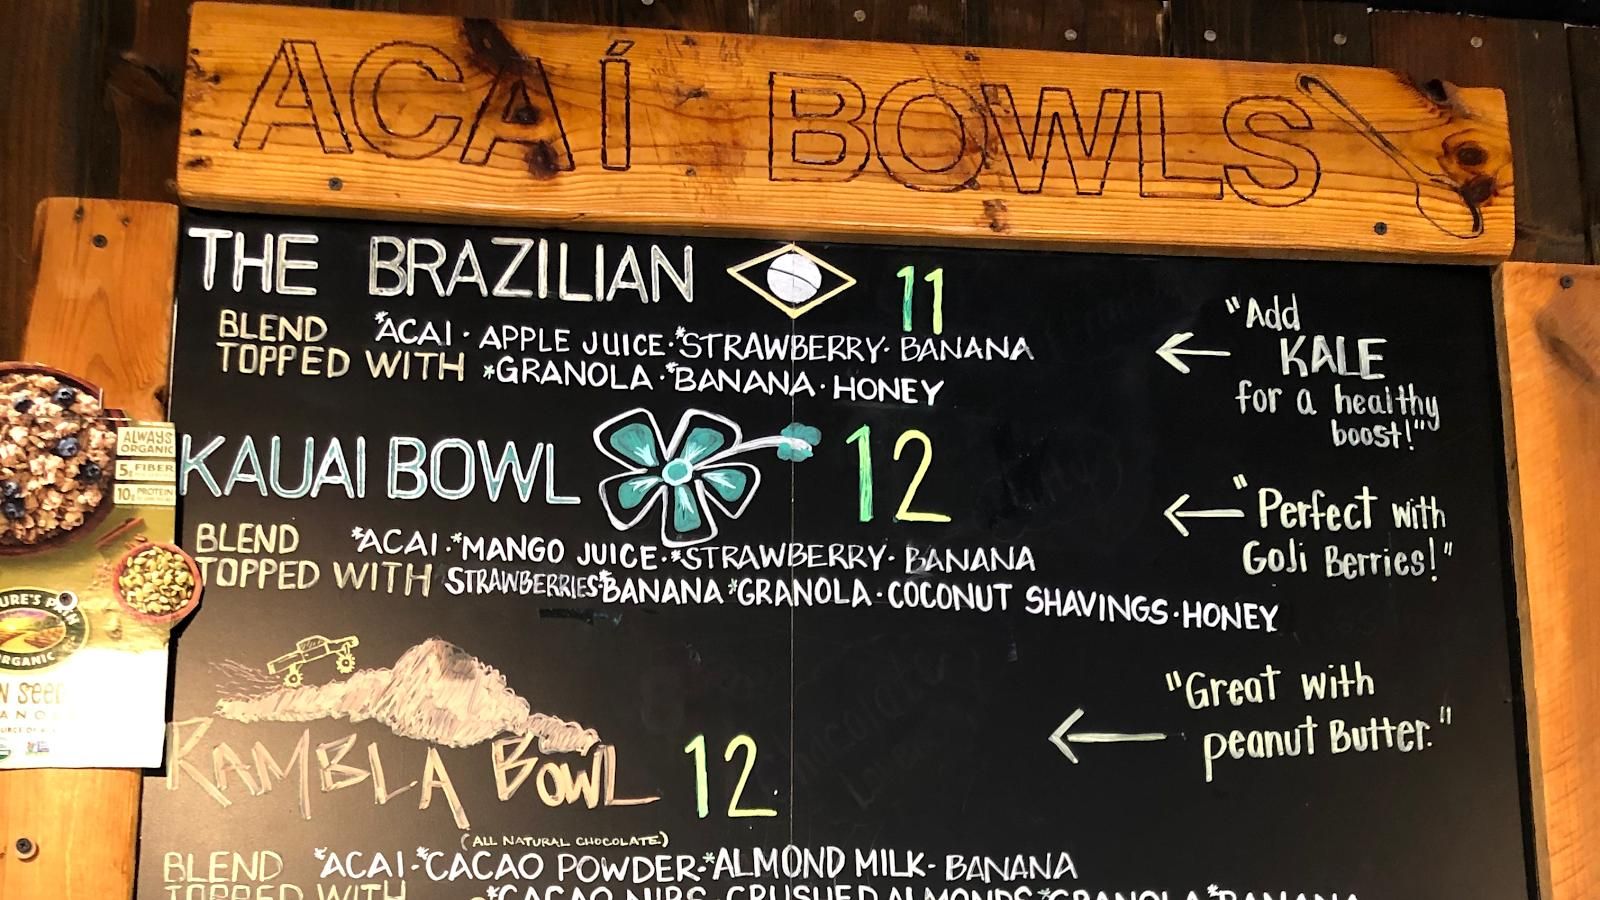 ACAÍ BOWLS
THE BRAZILIAN 11
BLEND *ACAI · APPLE JUICE · *STRAWBERRY · BANANA
TOPPED WITH *GRANOLA · *BANANA · HONEY
"Add
KALE
for a healthy
boost!"
KAUAI BOWL 12
BLEND *ACAI · *MANGO JUICE · *STRAWBERRY · BANANA
TOPPED WITH STRAWBERRIES *BANANA *GRANOLA · COCONUT SHAVINGS · HONEY
"Perfect with
Goji Berries!"
RAMBLA BOWL 12
"Great with
peanut Butter."
(ALL NATURAL CHOCOLATE)
BLEND *ACAI · *CACAO POWDER · *ALMOND MILK - BANANA
TOPPED WITH *CACAO NIBS · CRUSHED ALMONDS *GRANOLA *BANANA
ALWAYS
ORGANIC
5g FIBER
10g PROTEIN
ORGANIC